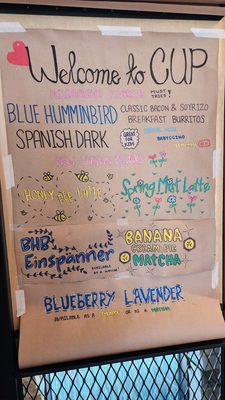 Welcome to CUP
MUST TRIES!
BLUE HUMMINBIRD
SPANISH DARK
CLASSIC BACON & SOYRIZO
BREAKFAST BURRITOS
GREAT FOR KIDS
BABYCCINO
HONEY BEE LATTE
Spring Mint Latte
BHB
Einspänner
AVAILABLE AS A
BANANA
CREAM PIE
MATCHA
BLUEBERRY LAVENDER
AVAILABLE AS A OR AS A MATCHA